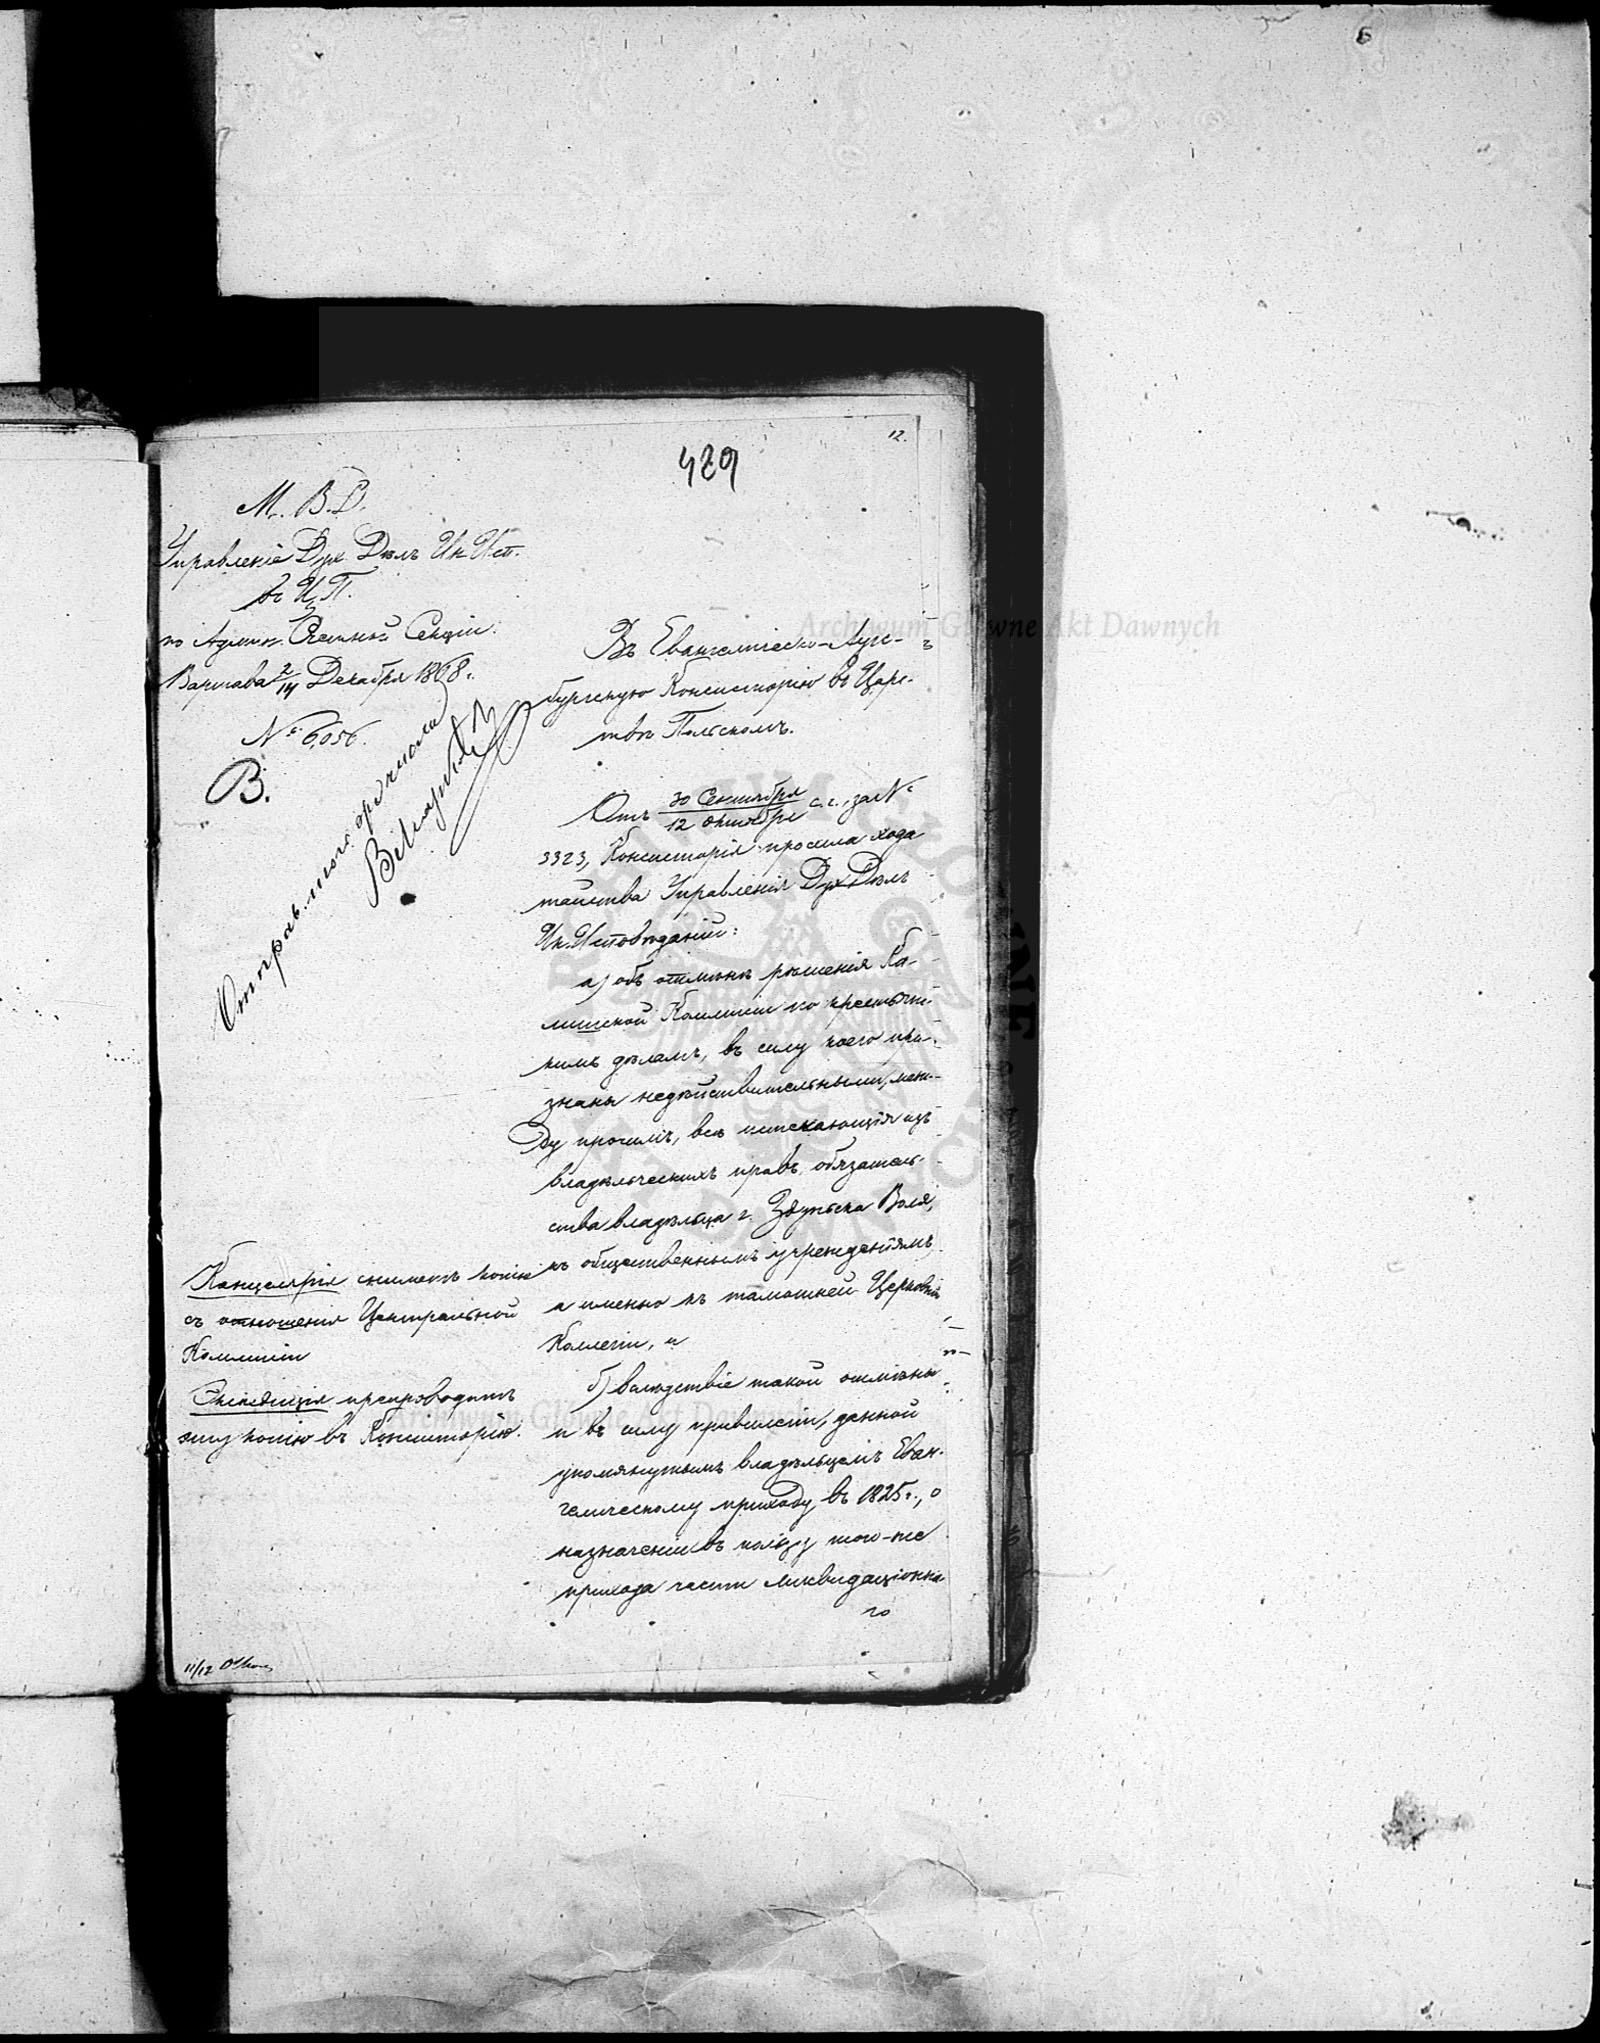 12.
429
М. В. Д.
Управленіе Дух. Дѣлъ Ин. Исп.
въ Ц. П.
по Админ. Счетной Секціи.
Варшава 2/14 Декабря 1868 г.
№ 6,056.
В.
Въ Евангелическо-Аугс-
бургскую Консисторію въ Царс-
твѣ Польскомъ.
Отъ 30 Сентября/12 Октября с. г., за №
3323, Консисторія просила хода
тайства Управленія Дух. Дѣлъ
Ин. Исповѣданій:
а) объ отмѣнѣ рѣшенія Ка-
лишской Коммисіи по крестьянс-
кимъ дѣламъ, въ силу коего при-
знаны недѣйствительными, меж-
ду прочимъ, всѣ истекающія изъ
владѣльческихъ правъ, обязатель-
ства владѣльца г. Здуньска Воля,
къ общественнымъ учрежденіямъ,
а именно къ тамошней Церковной
Коллегіи, и
б) вслѣдствіе такой отмѣны
и въ силу привилегіи, данной
упомянутымъ владѣльцемъ Еван-
гелическому приходу въ 1825 г., о
назначеніи въ пользу того-же
прихода части ликвидаціонна
го
Канцелярія сниметъ копію
съ отношенія Центральной
Коммисіи
Экспедиція препроводитъ
эту копію въ Консисторію.
11/12
Archiwum Główne Akt Dawnych
Archiwum Główne Akt Dawnych